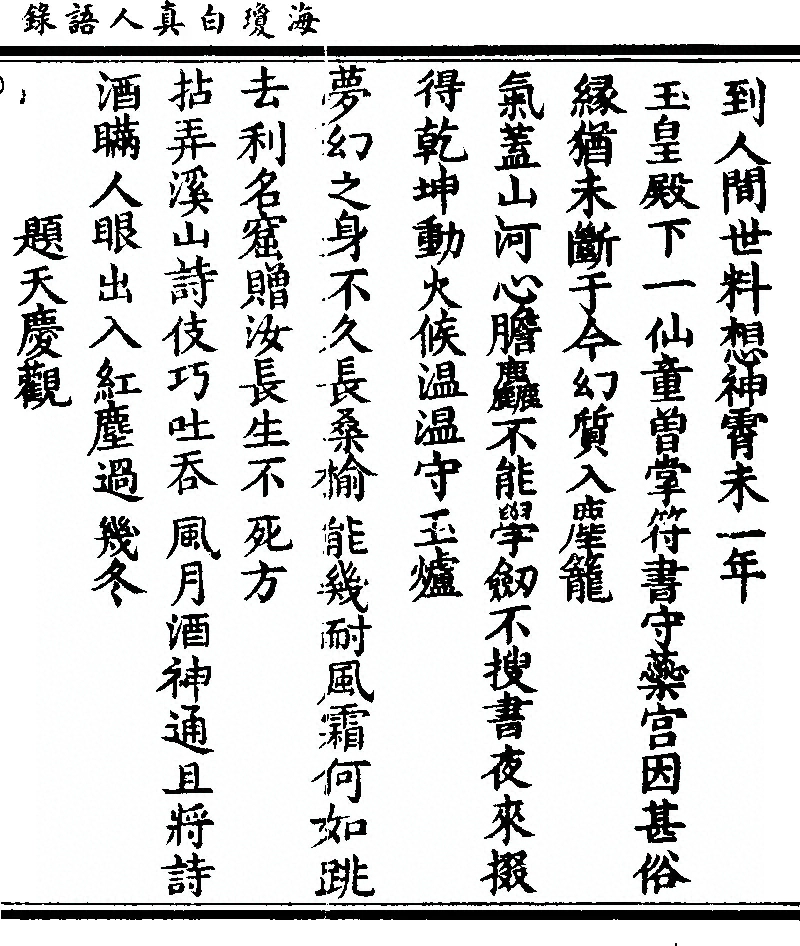 海瓊白真人語錄
到人間世料想神霄未一年
玉皇殿下一仙童曾掌符書守藥宮因甚俗
緣猶未斷于今幻質入塵籠
氣蓋山河心膽麤不能學劒不搜書夜來掇
得乾坤動火候温温守玉爐
夢幻之身不久長桑榆能幾耐風霜何如跳
去利名窟贈汝長生不死方
拈弄溪山詩伎巧吐吞風月酒神通且將詩
酒瞞人眼出入紅塵過幾冬
題天慶觀